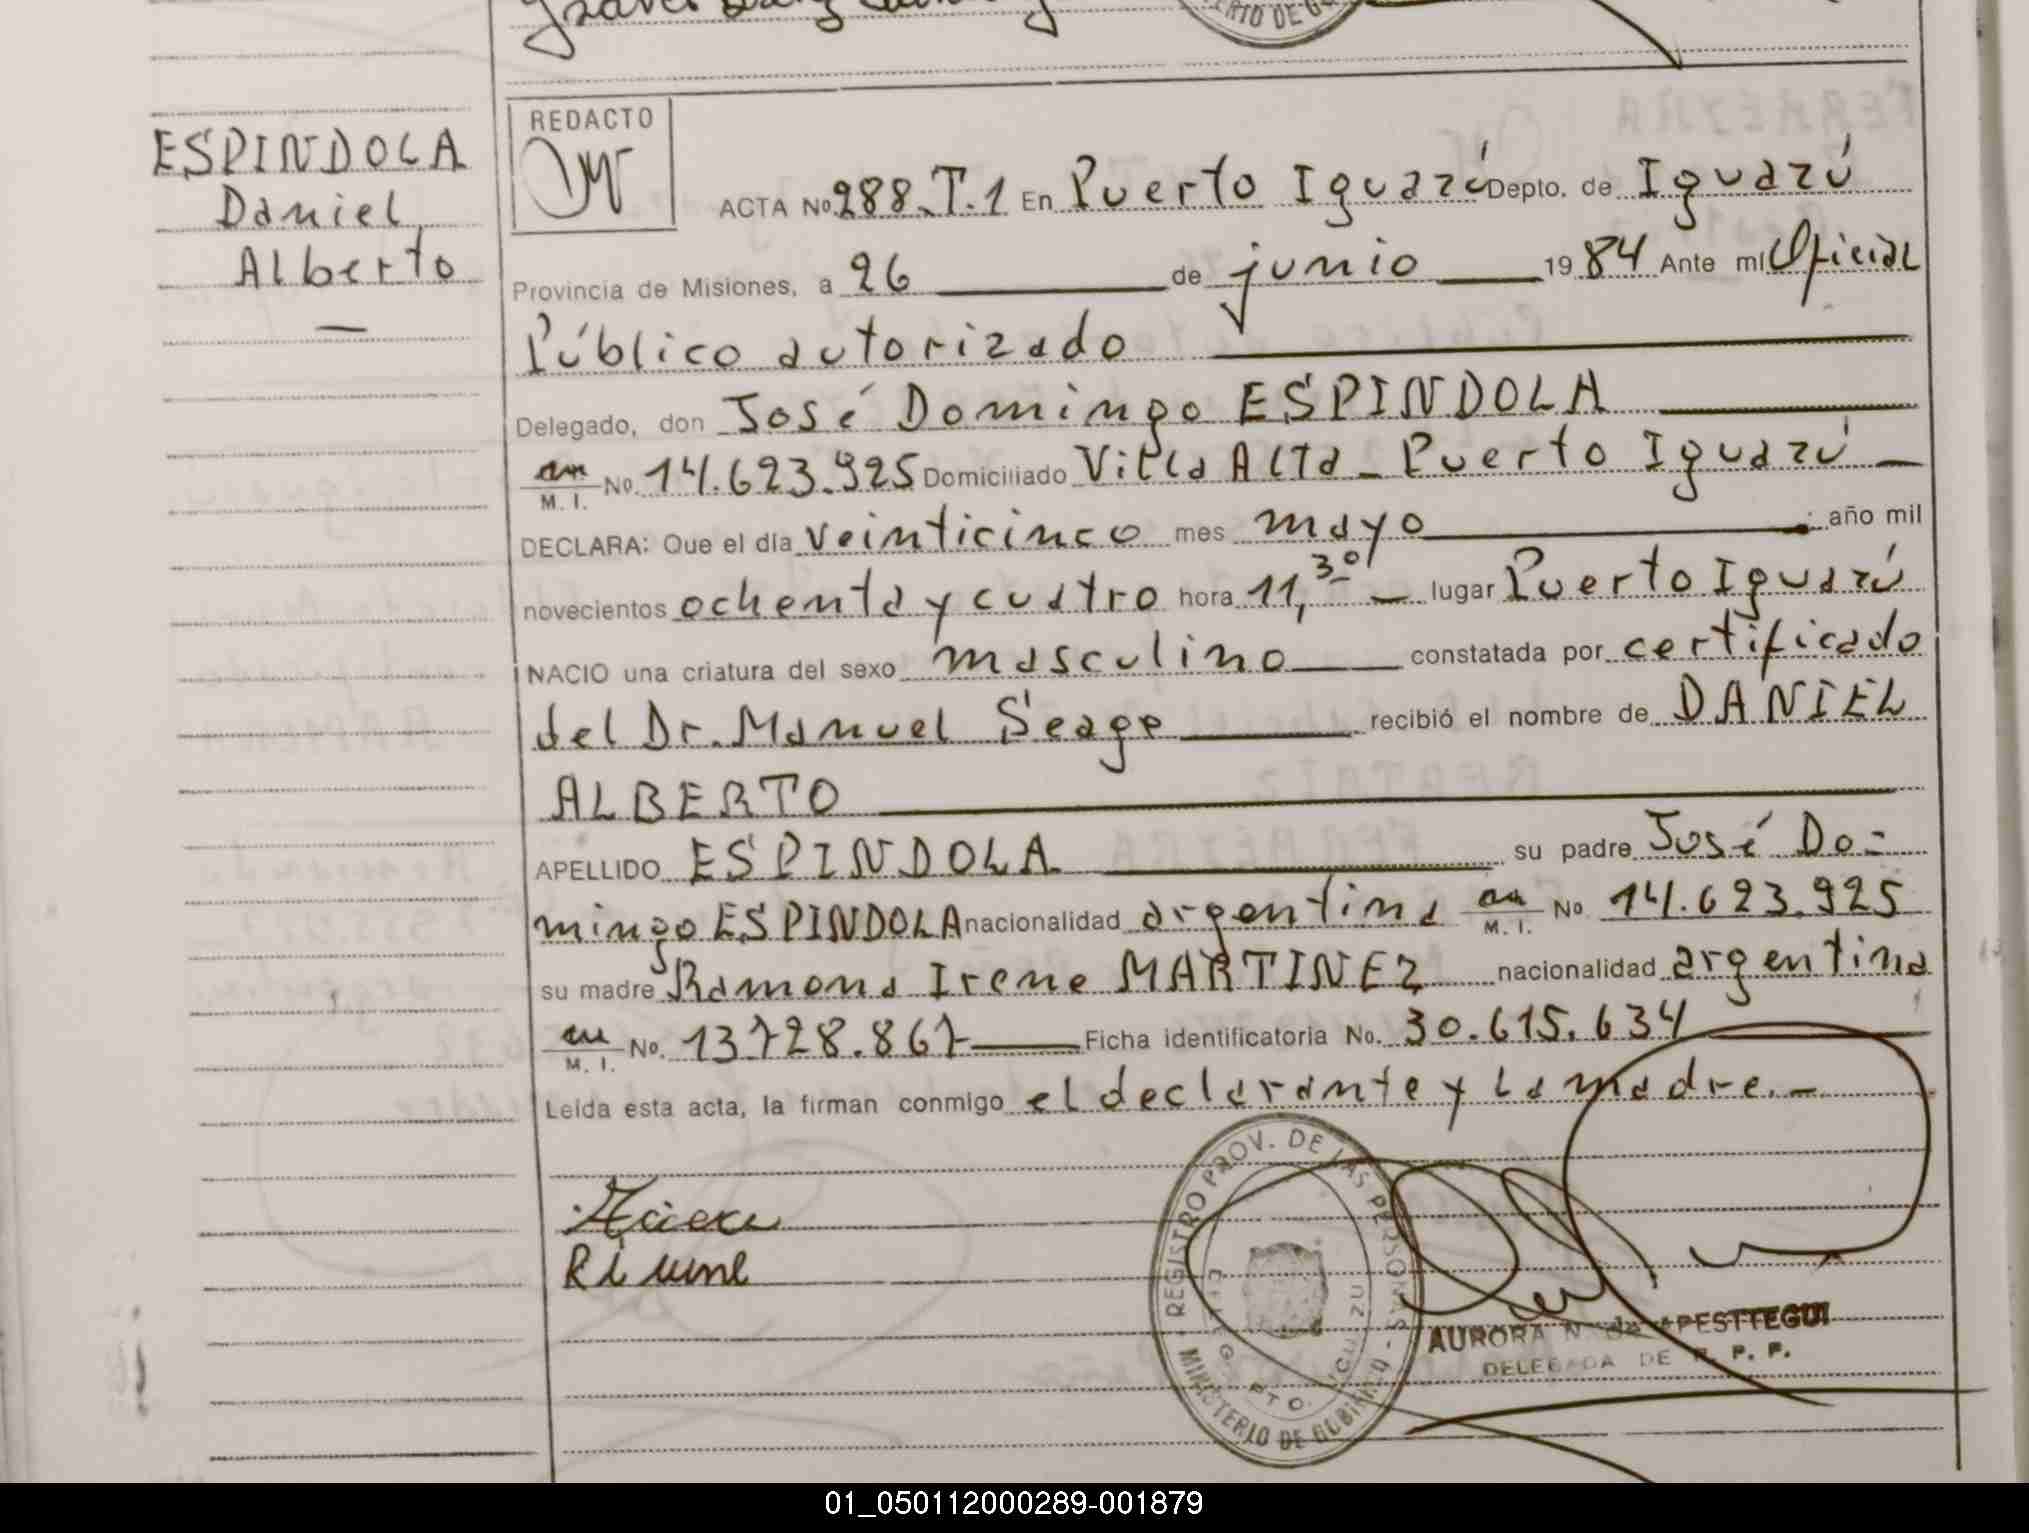 ESPINDOLA
Daniel
Alberto
REDACTO
ACTA No. 288. T. 1 En Puerto Iguazú Depto. de Iguazú
Provincia de Misiones, a 26 de junio 1984 Ante mi Oficial
Público autorizado
Delegado, don José Domingo ESPINDOLA
M. I. No. 14.623.925 Domiciliado Villa Alta - Puerto Iguazú
DECLARA: Que el día veinticinco mes mayo año mil
novecientos ochenta y cuatro hora 11,30 lugar Puerto Iguazú
NACIO una criatura del sexo masculino constatada por certificado
del Dr. Manuel Seage recibió el nombre de DANIEL
ALBERTO
APELLIDO ESPINDOLA su padre José Do-
mingo ESPINDOLA nacionalidad argentina M. I. No 14.623.925
su madre Ramona Irene MARTINEZ nacionalidad argentina
M. I. No. 13728.867 Ficha identificatoria No. 30.615.634
Leída esta acta, la firman conmigo el declarante y la madre.-
REGISTRO PROV. DE LAS PERSONAS
MINISTERIO DE GOBIERNO
AURORA N. de APESTTEGUI
DELEGADA DE R. P. P.
01_050112000289-001879